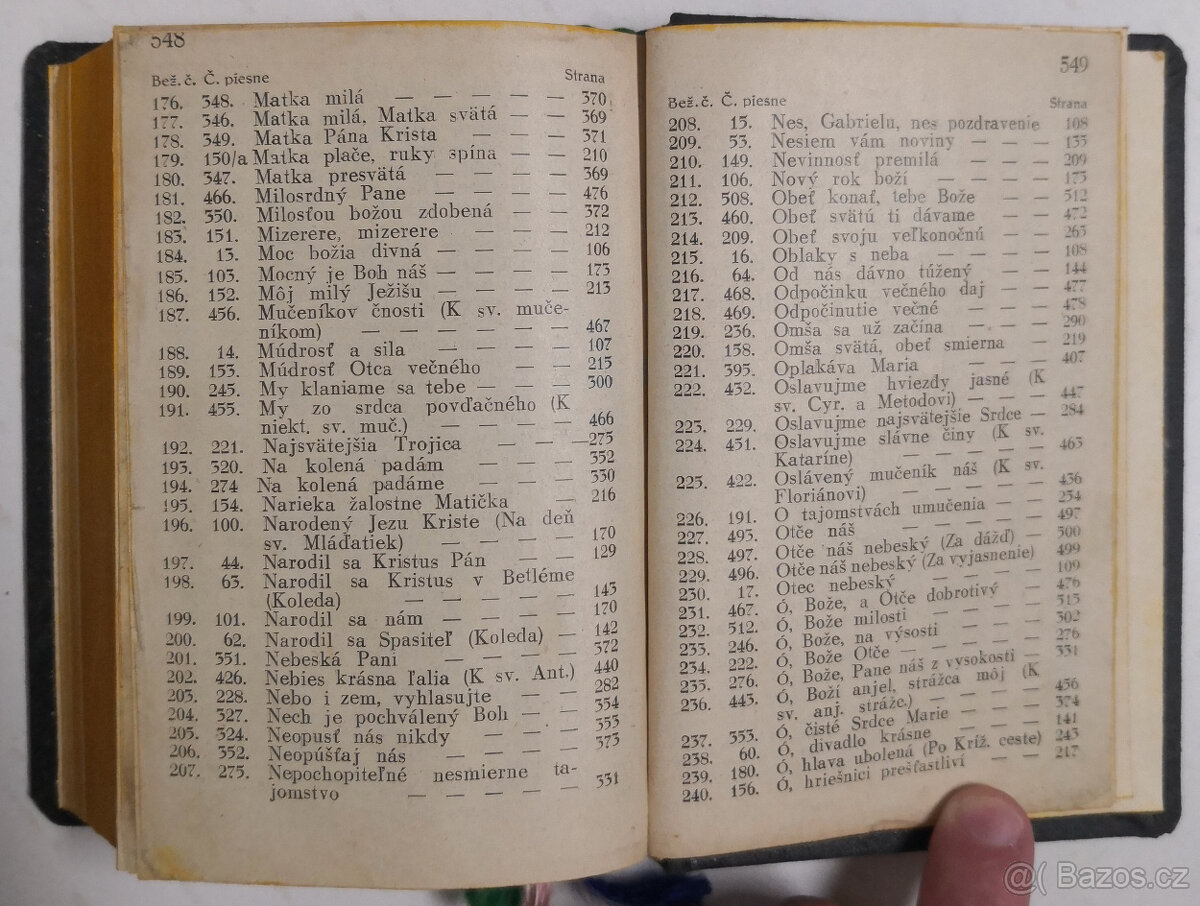 548
Bež. č. Č. piesne Strana
176. 348. Matka milá — — — — — 370
177. 346. Matka milá, Matka svätá — — 369
178. 349. Matka Pána Krista — — — 371
179. 150/a Matka plače, ruky spína — — 210
180. 347. Matka presvätá — — — — 369
181. 466. Milosrdný Pane — — — — 476
182. 350. Milosťou božou zdobená — — 372
183. 151. Mizerere, mizerere — — — 212
184. 13. Moc božia divná — — — — 106
185. 103. Mocný je Boh náš — — — — 173
186. 152. Môj milý Ježišu — — — — 213
187. 456. Mučeníkov čnosti (K sv. muče-
níkom) — — — — — 467
188. 14. Múdrosť a sila — — — — 107
189. 153. Múdrosť Otca večného — — — 215
190. 245. My klaniame sa tebe — — — 300
191. 455. My zo srdca povďačného (K
niekt. sv. muč.) — — — — 466
192. 221. Najsvätejšia Trojica — — — 275
193. 320. Na kolená padám — — — 352
194. 274 Na kolená padáme — — — 330
195. 154. Narieka žalostne Matička — 216
196. 100. Narodený Jezu Kriste (Na deň
sv. Mláďatiek) — — — — 170
197. 44. Narodil sa Kristus Pán — — 129
198. 63. Narodil sa Kristus v Betléme
(Koleda) — — — — — 143
199. 101. Narodil sa nám — — — — 170
200. 62. Narodil sa Spasiteľ (Koleda) — 142
201. 351. Nebeská Pani — — — — 372
202. 426. Nebies krásna ľalia (K sv. Ant.) 440
203. 228. Nebo i zem, vyhlasujte — — 282
204. 327. Nech je pochválený Boh — — 354
205. 324. Neopusť nás nikdy — — — 353
206. 352. Neopúšťaj nás — — — — 373
207. 275. Nepochopiteľné nesmierne ta-
jomstvo — — — — — 331
549
Bež. č. Č. piesne Strana
208. 15. Nes, Gabrielu, nes pozdravenie 108
209. 53. Nesiem vám noviny — — — 135
210. 149. Nevinnosť premilá — — — 209
211. 106. Nový rok boží — — — — 175
212. 508. Obeť konať, tebe Bože — — 512
213. 460. Obeť svätú ti dávame — — 472
214. 209. Obeť svoju veľkonočnú — — 263
215. 16. Oblaky s neba — — — — 108
216. 64. Od nás dávno túžený — — 144
217. 468. Odpočinku večného daj — — 477
218. 469. Odpočinutie večné — — — 478
219. 236. Omša sa už začína — — — 290
220. 158. Omša svätá, obeť smierna — 219
221. 395. Oplakáva Maria — — — 407
222. 432. Oslavujme hviezdy jasné (K
sv. Cyr. a Metodovi) — — — 447
223. 229. Oslavujme najsvätejšie Srdce — 284
224. 451. Oslavujme slávne činy (K sv.
Kataríne) — — — — — 463
225. 422. Oslávený mučeník náš (K sv.
Floriánovi) — — — — — 436
226. 191. O tajomstvách umučenia — — 254
227. 493. Otče náš — — — — — 497
228. 497. Otče náš nebeský (Za dážď) — 500
229. 496. Otče náš nebeský (Za vyjasnenie) 499
230. 17. Otec nebeský — — — — 109
231. 467. Ó, Bože, a Otče dobrotivý — 476
232. 512. Ó, Bože milosti — — — 515
233. 246. Ó, Bože, na výsosti — — — 302
234. 222. Ó, Bože Otče — — — — 276
235. 276. Ó, Bože, Pane náš z vysokosti — 331
236. 443. Ó, Boží anjel, strážca môj (K
sv. anj. stráže.) — — — — 456
237. 353. Ó, čisté Srdce Marie — — — 374
238. 60. Ó, divadlo krásne — — — 141
239. 180. Ó, hlava ubolená (Po Kríž. ceste) 243
240. 156. Ó, hriešnici prešťastliví — — 217
@( Bazos.cz